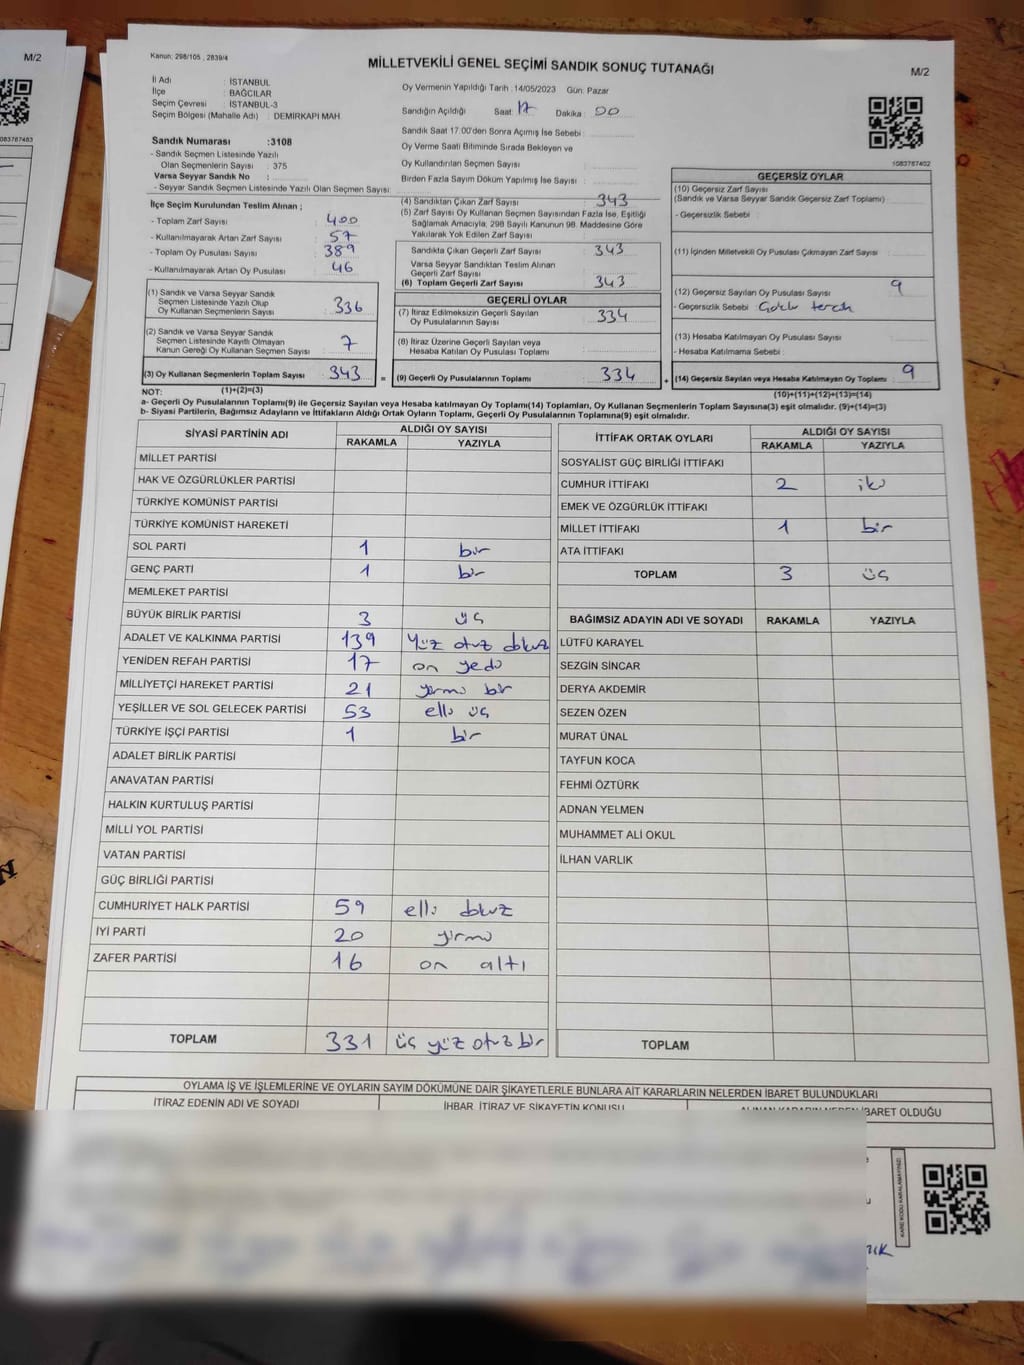 M/2
1083787483
Kanun: 298/105 , 2839/4
MİLLETVEKİLİ GENEL SEÇİMİ SANDIK SONUÇ TUTANAĞI
M/2
İl Adı : İSTANBUL
İlçe : BAĞCILAR
Seçim Çevresi : İSTANBUL-3
Seçim Bölgesi (Mahalle Adı) : DEMİRKAPI MAH.
Oy Vermenin Yapıldığı Tarih : 14/05/2023 Gün: Pazar
Sandığın Açıldığı Saat: 17 Dakika : 00
Sandık Saat 17.00'den Sonra Açımış İse Sebebi :
Oy Verme Saati Bitiminde Sırada Bekleyen ve
Oy Kullandırılan Seçmen Sayısı :
Birden Fazla Sayım Döküm Yapılmış İse Sayısı :
1083787402
Sandık Numarası :3108
- Sandık Seçmen Listesinde Yazılı
Olan Seçmenlerin Sayısı : 375
Varsa Seyyar Sandık No :
- Seyyar Sandık Seçmen Listesinde Yazılı Olan Seçmen Sayısı:
İlçe Seçim Kurulundan Teslim Alınan ;
- Toplam Zarf Sayısı : 400
- Kullanılmayarak Artan Zarf Sayısı : 57
- Toplam Oy Pusulası Sayısı : 389
- Kullanılmayarak Artan Oy Pusulası : 46
(1) Sandık ve Varsa Seyyar Sandık
Seçmen Listesinde Yazılı Olup
Oy Kullanan Seçmenlerin Sayısı : 336
(2) Sandık ve Varsa Seyyar Sandık
Seçmen Listesinde Kayıtlı Olmayan
Kanun Gereği Oy Kullanan Seçmen Sayısı : 7
(3) Oy Kullanan Seçmenlerin Toplam Sayısı : 343
(1)+(2)=(3)
(4) Sandıktan Çıkan Zarf Sayısı : 343
(5) Zarf Sayısı Oy Kullanan Seçmen Sayısından Fazla İse, Eşitliği
Sağlamak Amacıyla, 298 Sayılı Kanunun 98. Maddesine Göre
Yakılarak Yok Edilen Zarf Sayısı :
Sandıkta Çıkan Geçerli Zarf Sayısı : 343
Varsa Seyyar Sandıktan Teslim Alınan
Geçerli Zarf Sayısı :
(6) Toplam Geçerli Zarf Sayısı : 343
GEÇERLİ OYLAR
(7) İtiraz Edilmeksizin Geçerli Sayılan
Oy Pusulalarının Sayısı : 334
(8) İtiraz Üzerine Geçerli Sayılan veya
Hesaba Katılan Oy Pusulası Toplamı :
= (9) Geçerli Oy Pusulalarının Toplamı : 334
GEÇERSİZ OYLAR
(10) Geçersiz Zarf Sayısı
(Sandık ve Varsa Seyyar Sandık Geçersiz Zarf Toplamı) :
- Geçersizlik Sebebi :
(11) İçinden Milletvekili Oy Pusulası Çıkmayan Zarf Sayısı :
(12) Geçersiz Sayılan Oy Pusulası Sayısı : 9
- Geçersizlik Sebebi : Çoklu tercih
(13) Hesaba Katılmayan Oy Pusulası Sayısı :
- Hesaba Katılmama Sebebi :
+ (14) Geçersiz Sayılan veya Hesaba Katılmayan Oy Toplamı : 9
(10)+(11)+(12)+(13)=(14)
NOT:
a- Geçerli Oy Pusulalarının Toplamı(9) ile Geçersiz Sayılan veya Hesaba katılmayan Oy Toplamı(14) Toplamları, Oy Kullanan Seçmenlerin Toplam Sayısına(3) eşit olmalıdır. (9)+(14)=(3)
b- Siyasi Partilerin, Bağımsız Adayların ve İttifakların Aldığı Ortak Oyların Toplamı, Geçerli Oy Pusulalarının Toplamına(9) eşit olmalıdır.
SİYASİ PARTİNİN ADI ALDIĞI OY SAYISI
RAKAMLA YAZIYLA
MİLLET PARTİSİ
HAK VE ÖZGÜRLÜKLER PARTİSİ
TÜRKİYE KOMÜNİST PARTİSİ
TÜRKİYE KOMÜNİST HAREKETİ
SOL PARTİ 1 bir
GENÇ PARTİ 1 bir
MEMLEKET PARTİSİ
BÜYÜK BİRLİK PARTİSİ 3 üç
ADALET VE KALKINMA PARTİSİ 139 Yüz otuz dokuz
YENİDEN REFAH PARTİSİ 17 on yedi
MİLLİYETÇİ HAREKET PARTİSİ 21 yirmi bir
YEŞİLLER VE SOL GELECEK PARTİSİ 53 elli üç
TÜRKİYE İŞÇİ PARTİSİ 1 bir
ADALET BİRLİK PARTİSİ
ANAVATAN PARTİSİ
HALKIN KURTULUŞ PARTİSİ
MİLLİ YOL PARTİSİ
VATAN PARTİSİ
GÜÇ BİRLİĞİ PARTİSİ
CUMHURİYET HALK PARTİSİ 59 elli dokuz
İYİ PARTİ 20 yirmi
ZAFER PARTİSİ 16 on altı
TOPLAM 331 üç yüz otuz bir
İTTİFAK ORTAK OYLARI ALDIĞI OY SAYISI
RAKAMLA YAZIYLA
SOSYALİST GÜÇ BİRLİĞİ İTTİFAKI
CUMHUR İTTİFAKI 2 iki
EMEK VE ÖZGÜRLÜK İTTİFAKI
MİLLET İTTİFAKI 1 bir
ATA İTTİFAKI
TOPLAM 3 üç
BAĞIMSIZ ADAYIN ADI VE SOYADI RAKAMLA YAZIYLA
LÜTFÜ KARAYEL
SEZGİN SİNCAR
DERYA AKDEMİR
SEZEN ÖZEN
MURAT ÜNAL
TAYFUN KOCA
FEHMİ ÖZTÜRK
ADNAN YELMEN
MUHAMMET ALİ OKUL
İLHAN VARLIK
TOPLAM
OYLAMA İŞ VE İŞLEMLERİNE VE OYLARIN SAYIM DÖKÜMÜNE DAİR ŞİKAYETLERLE BUNLARA AİT KARARLARIN NELERDEN İBARET BULUNDUKLARI
İTİRAZ EDENİN ADI VE SOYADI İHBAR, İTİRAZ VE ŞİKAYETİN KONUSU ALINAN KARARIN NEDEN İBARET OLDUĞU
KARE KODU KARALAMAYINIZ!